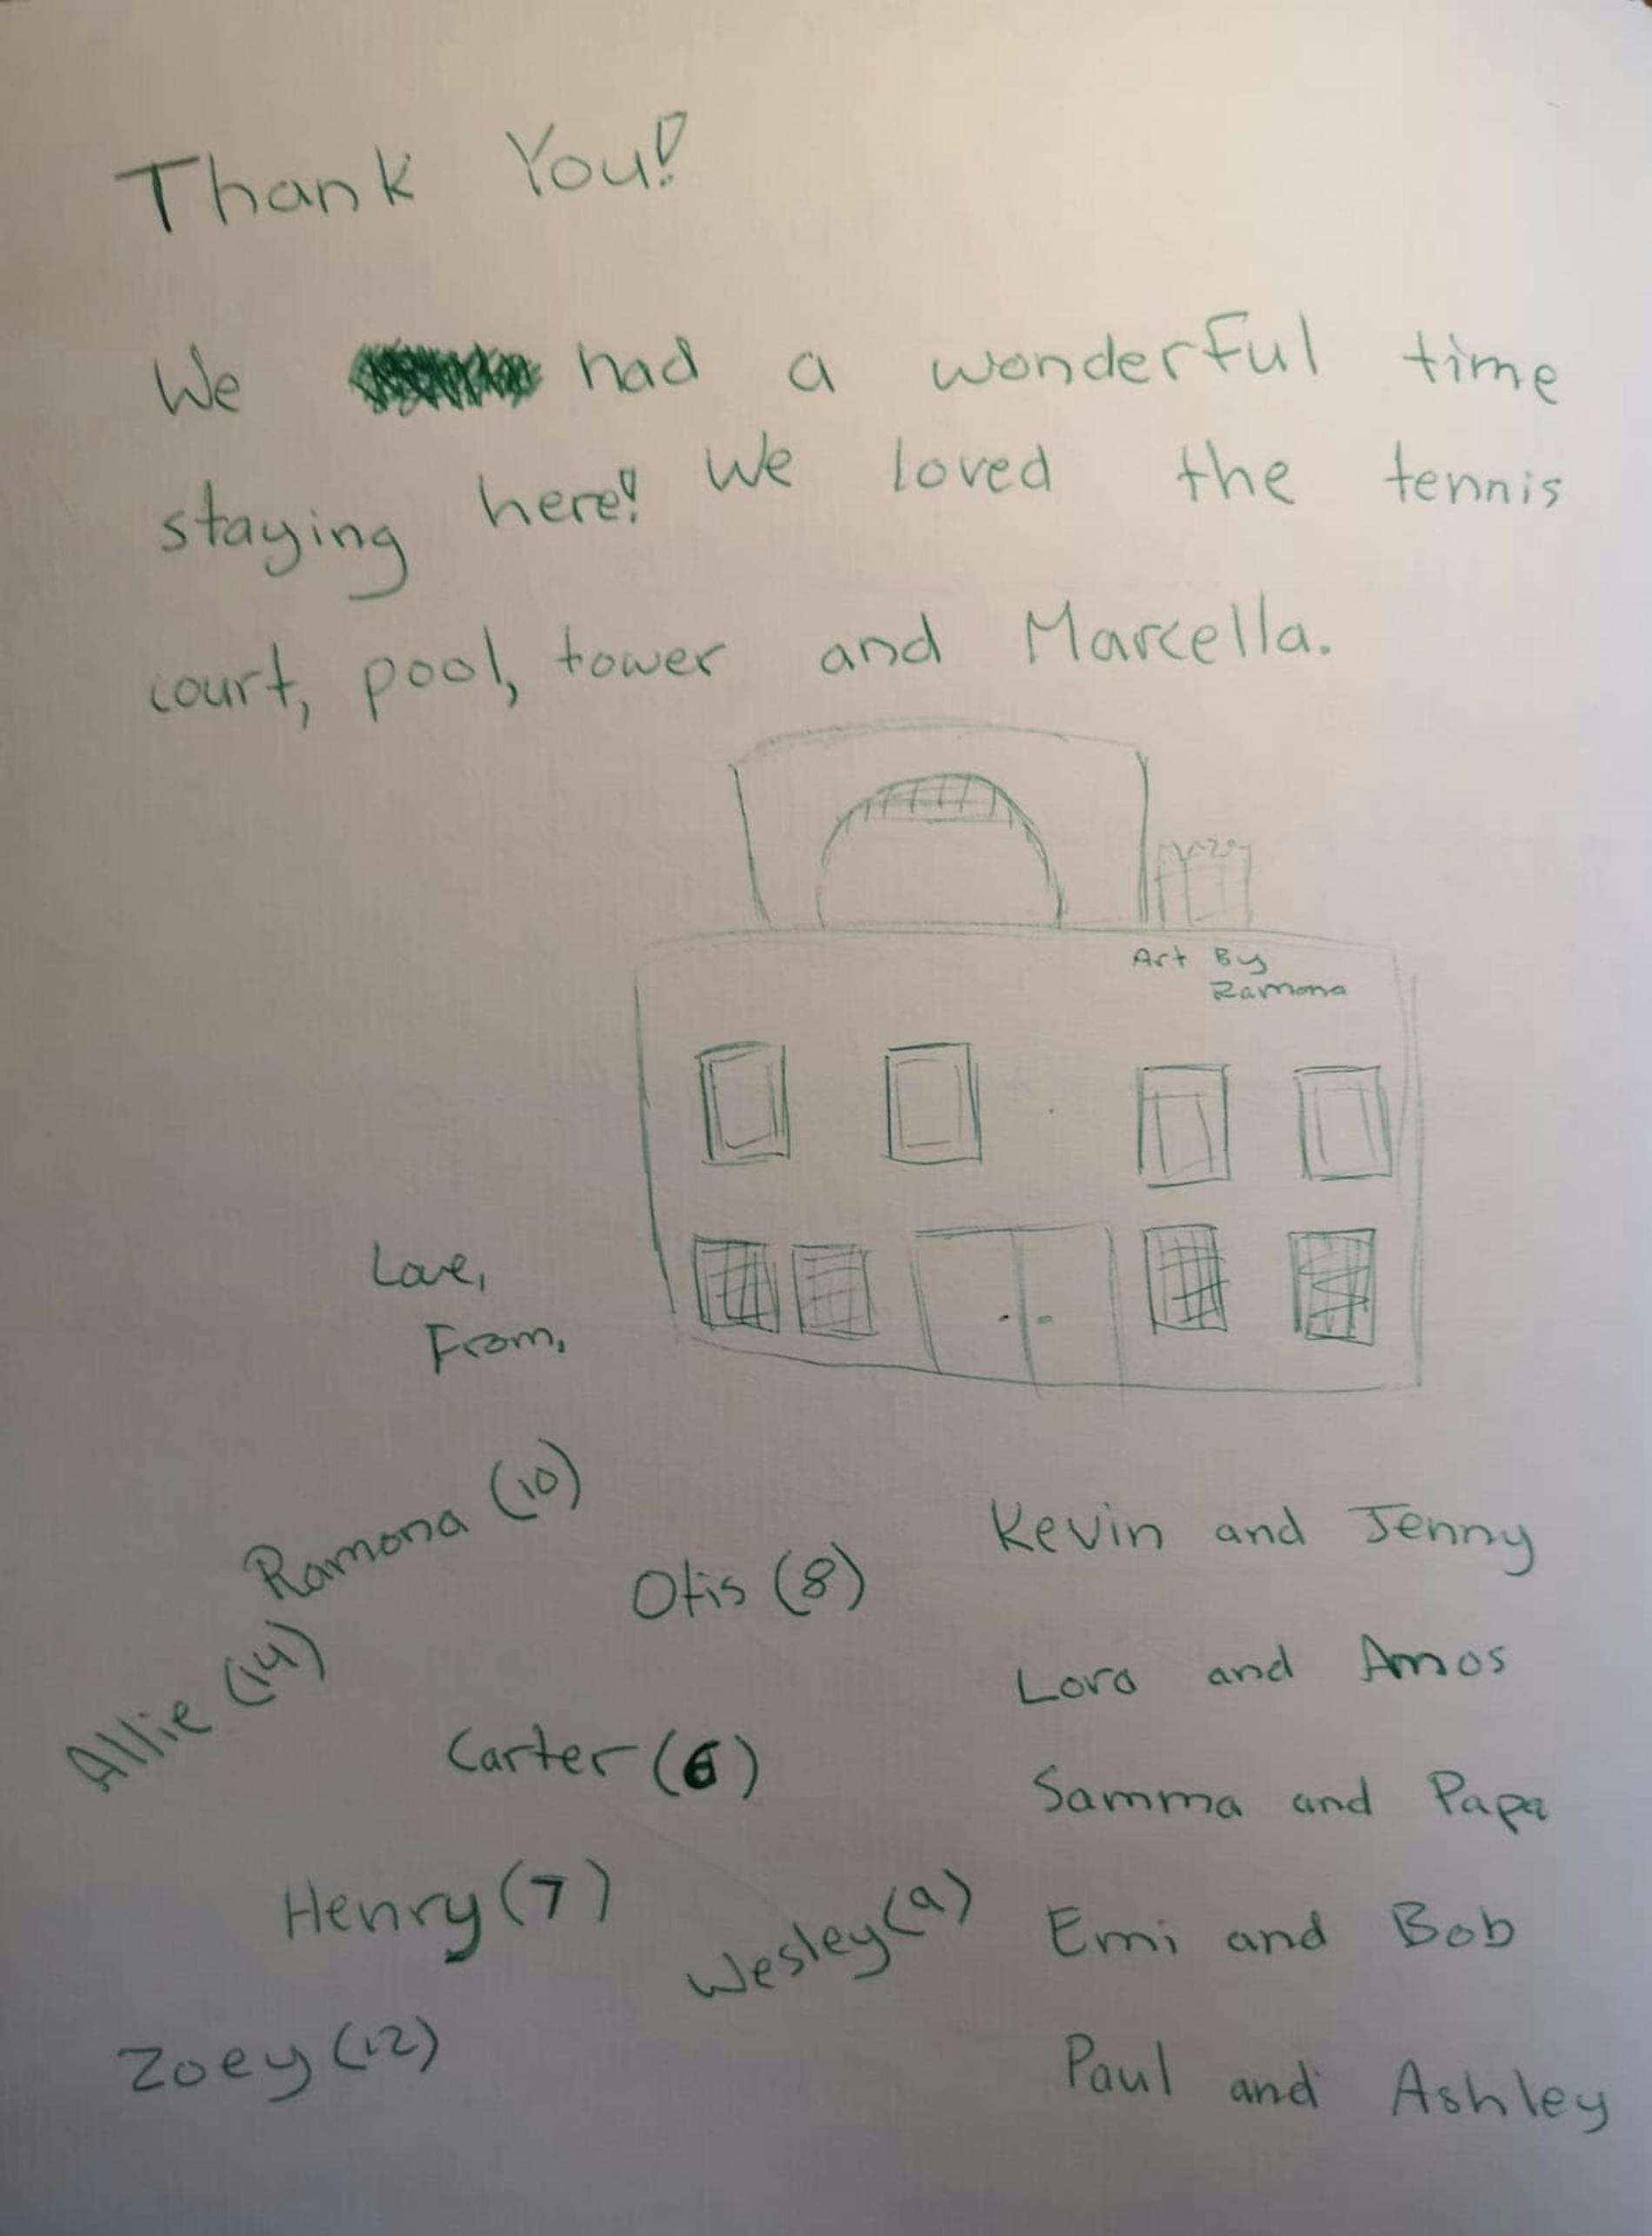 Thank You!
We had a wonderful time
staying here! We loved the tennis
court, pool, tower and Marcella.
Art By
Ramona
Love,
From,
Ramona (10)
Otis (8)
Allie (14)
Carter (6)
Henry (7)
Wesley (9)
Zoey (12)
Kevin and Jenny
Lora and Amos
Samma and Papa
Emi and Bob
Paul and Ashley